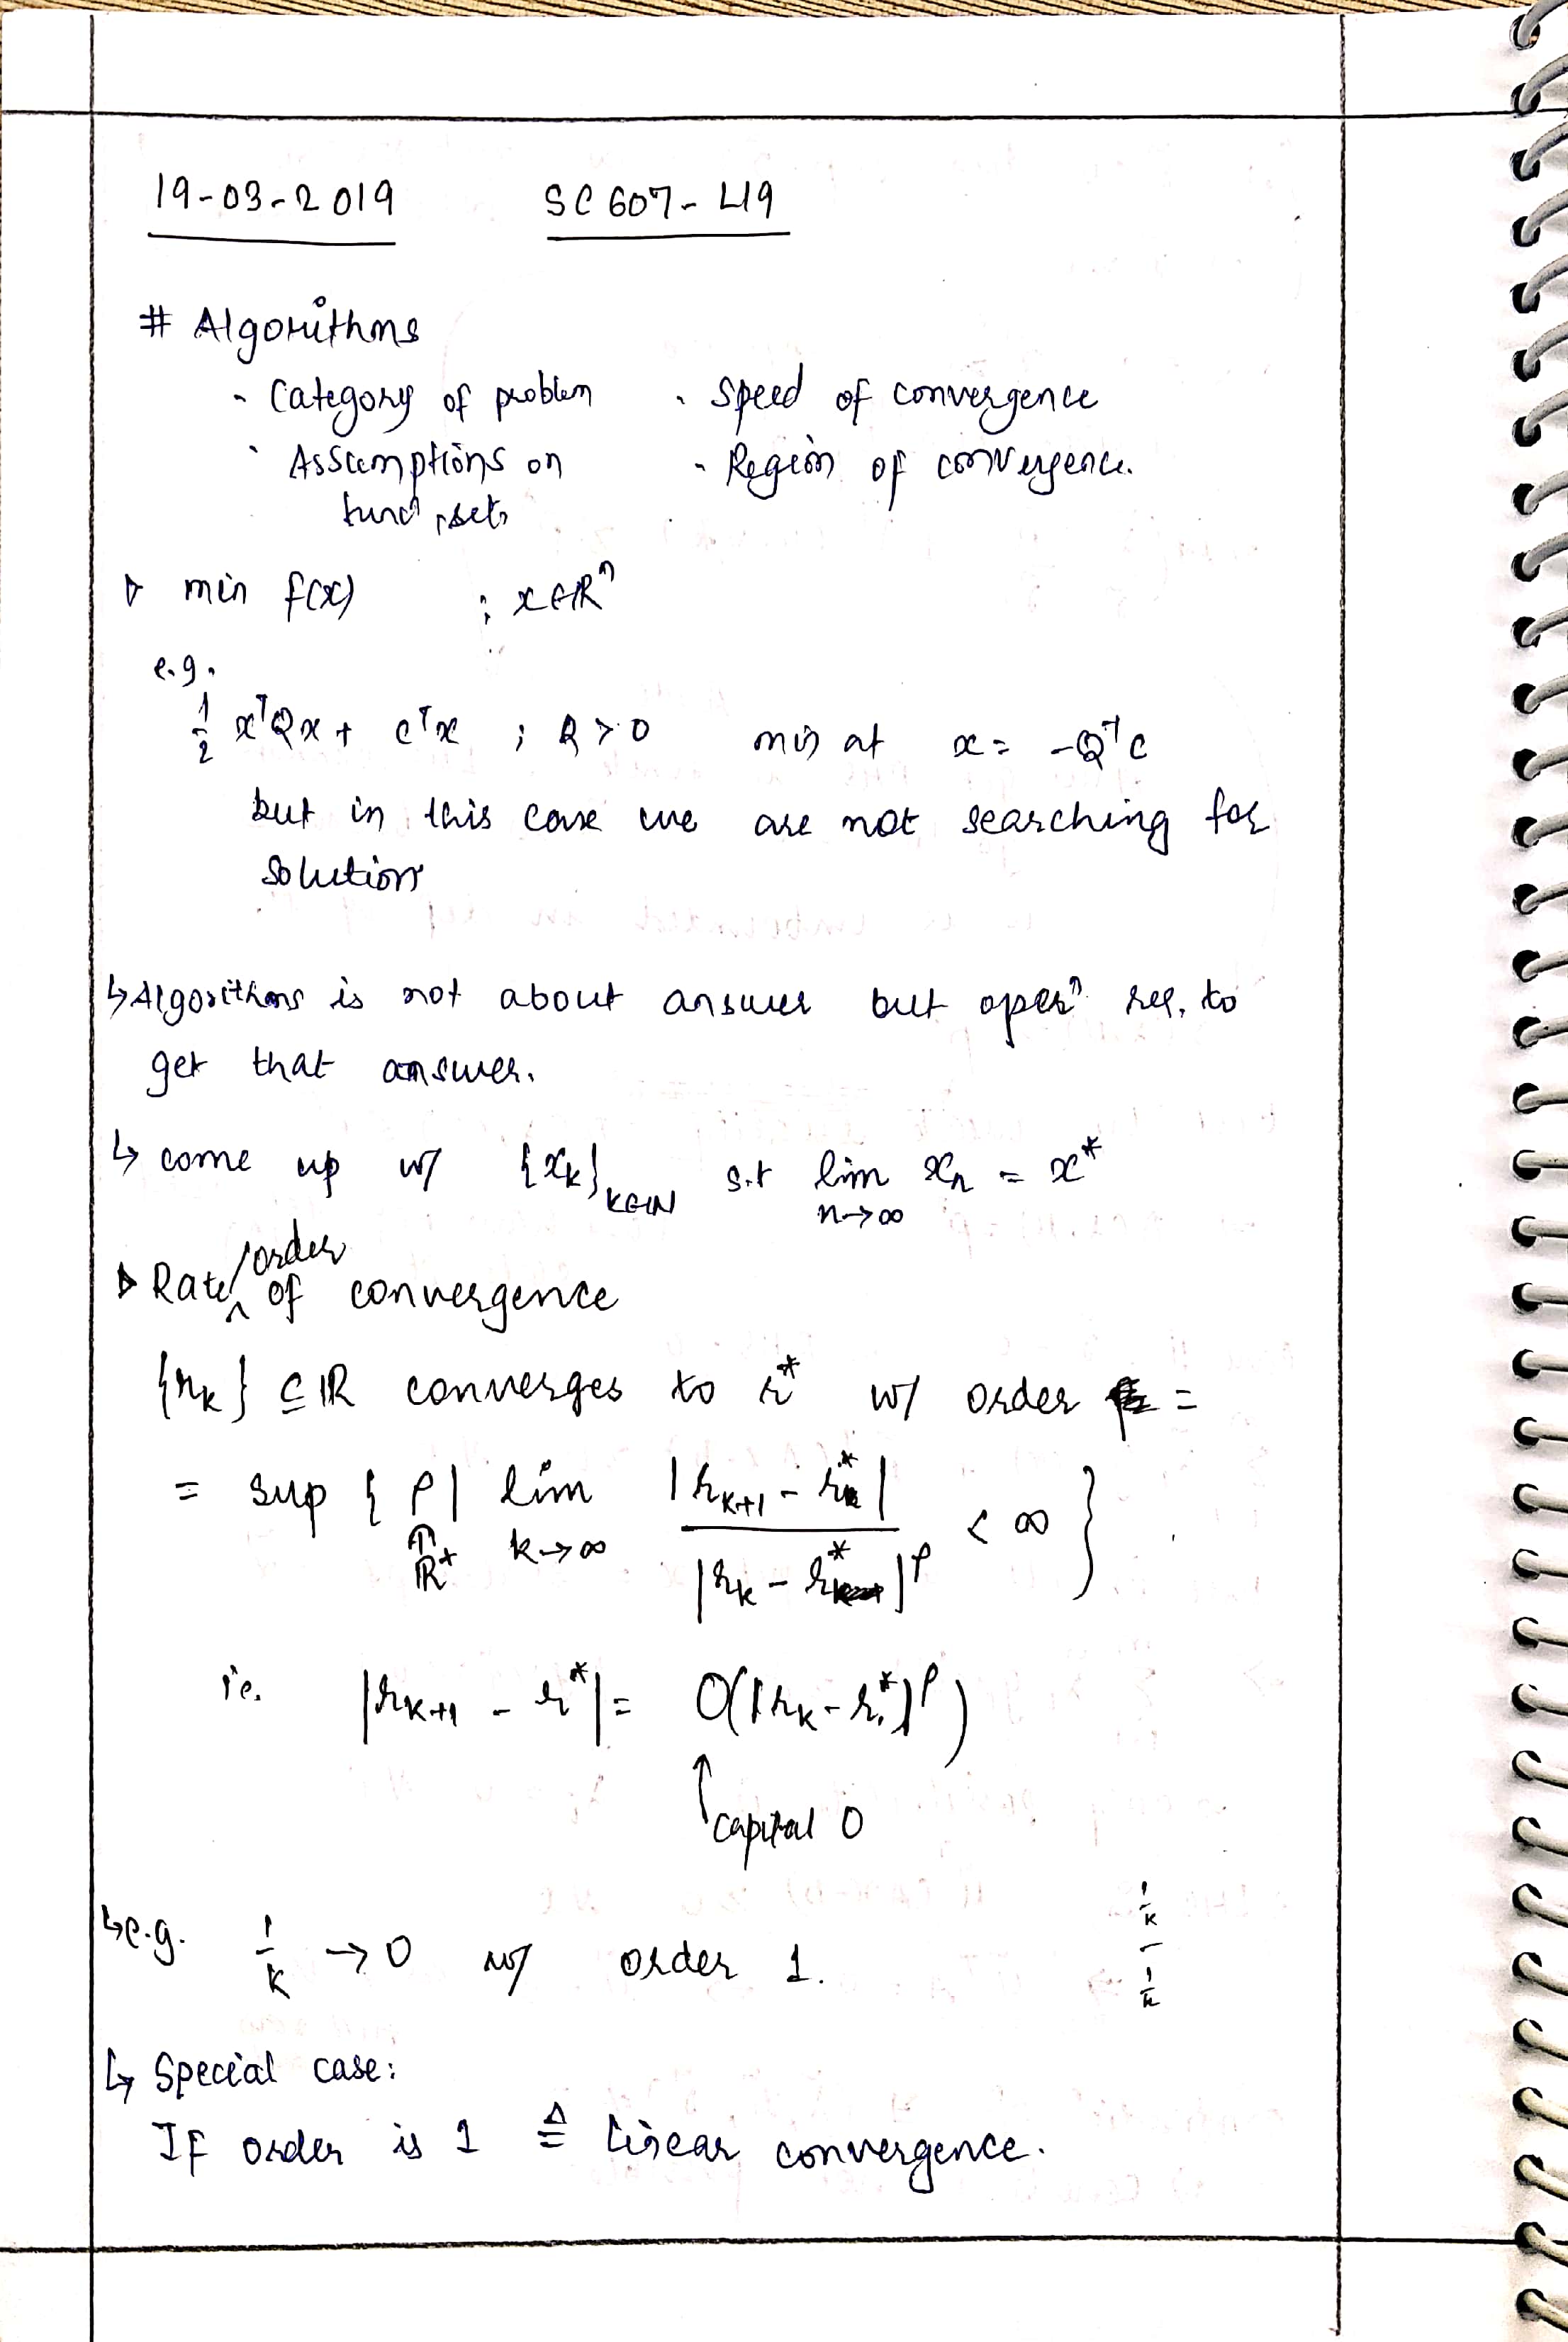 19-03-2019 SC 607-L19
# Algorithms
- Category of problem - Speed of convergence
- Assumptions on - Region of convergence.
funcⁿ, sets
▷ min f(x) ; x∈ℝⁿ
e.g.
1/2 xᵀQx + cᵀx ; Q > 0 min at x = -Q⁻¹c
but in this case we are not searching for
solution
↳ Algorithms is not about answer but operⁿ req. to
get that answer.
↳ come up w/ {xₖ}ₖ∈ℕ s.t lim xₙ = x*
n→∞
▷ Rate/order of convergence
{rₖ} ⊆ ℝ converges to r* w/ order =
= sup { p | lim |rₖ₊₁ - r*| / |rₖ - r*|ᵖ < ∞ }
∈ ℝ⁺ k→∞
ie. |rₖ₊₁ - r*| = O(|rₖ - r*|ᵖ)
↑ capital O
↳ e.g. 1/k → 0 w/ order 1. 1/k / 1/k
↳ Special case:
If order is 1 ≜ linear convergence.